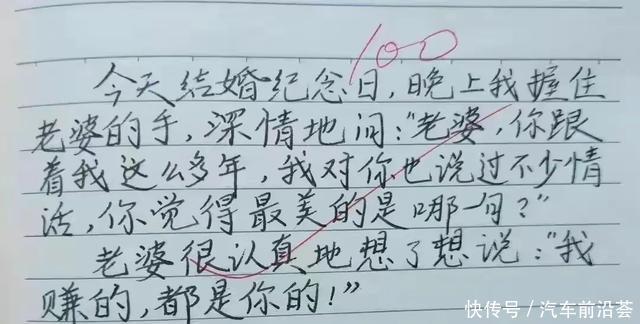 100
今天结婚纪念日,晚上我握住
老婆的手,深情地问:"老婆,你跟
着我这么多年,我对你也说过不少情
话,你觉得最美的是哪一句?"
老婆很认真地想了想说:"我
赚的,都是你的!"
快传号/汽车前沿荟